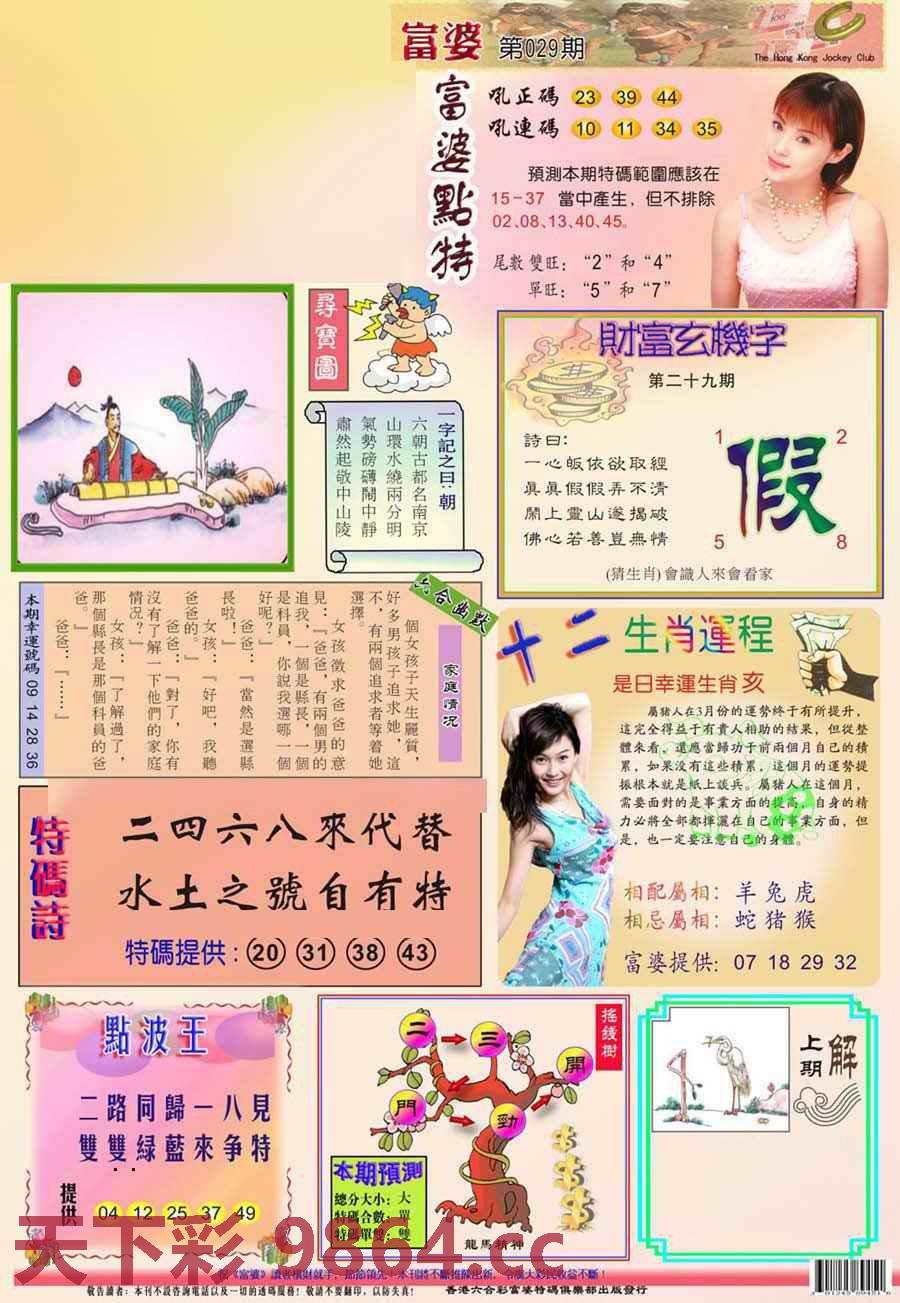 富婆 第029期
The Hong Kong Jockey Club
富婆點特
吼正碼 23 39 44
吼連碼 10 11 34 35
預測本期特碼範圍應該在
15-37 當中產生，但不排除
02、08、13、40、45。
尾數雙旺：“2”和“4”
單旺：“5”和“7”
尋寶圖
一字記之曰：朝
六朝古都名南京
山環水繞兩分明
氣勢磅礡鬧中靜
肅然起敬中山陵
財富玄機字
第二十九期
詩曰：
一心皈依欲取經
真真假假弄不清
鬧上靈山遂揭破
佛心若善豈無情
假
1 2
5 8
(猜生肖)會識人來會看家
六合幽默
家庭情況
個女孩子天生麗質，
好多男孩子追求她，這
不，有兩個追求者等着她
選擇。
女孩徵求爸爸的意
見：『爸爸，有兩個男的
追我，一個是縣長，一個
是科員，你說我選哪一個
好呢？』
爸爸：『當然是選縣
長啦！』
女孩：『好吧，我聽
爸爸的。』
爸爸：『對了，你有
沒有了解一下他們的家庭
情況？』
女孩：『了解過了，
那個縣長是那個科員的爸
爸。』
爸爸：『……』
本期幸運號碼 09 14 28 36
十二生肖運程
是日幸運生肖 亥
屬猪人在3月份的運勢終于有所提升，
這完全得益于有貴人相助的結果，但從整
體來看，還應當歸功于前兩個月自己的積
累，如果没有這些積累，這個月的運勢提
振根本就是紙上談兵。屬猪人在這個月，
需要面對的是事業方面的提高，自身的精
力必將全部都揮灑在自己的事業方面，但
是，也一定要注意自己的身體。
相配屬相：羊 兔 虎
相忌屬相：蛇 猪 猴
富婆提供：07 18 29 32
特碼詩
二四六八來代替
水土之號自有特
特碼提供：20 31 38 43
點波王
二路同歸一八見
雙雙綠藍來争特
提供
04 12 25 37 49
搖錢樹
二 三 開 門 勁
本期預測
總分大小：大
特碼合數：單
特碼單雙：雙
龍馬精神
上期 解
天下彩 9864.cc
祝《富婆》讀者橫財就手，節節領先！本刊將不斷推陳出新，令廣大彩民收益不斷！
敬告讀者：本刊不設咨詢電話以及一切的透碼服務！敬請不要翻印，以防失真！
香港六合彩富婆特碼俱樂部出版發行